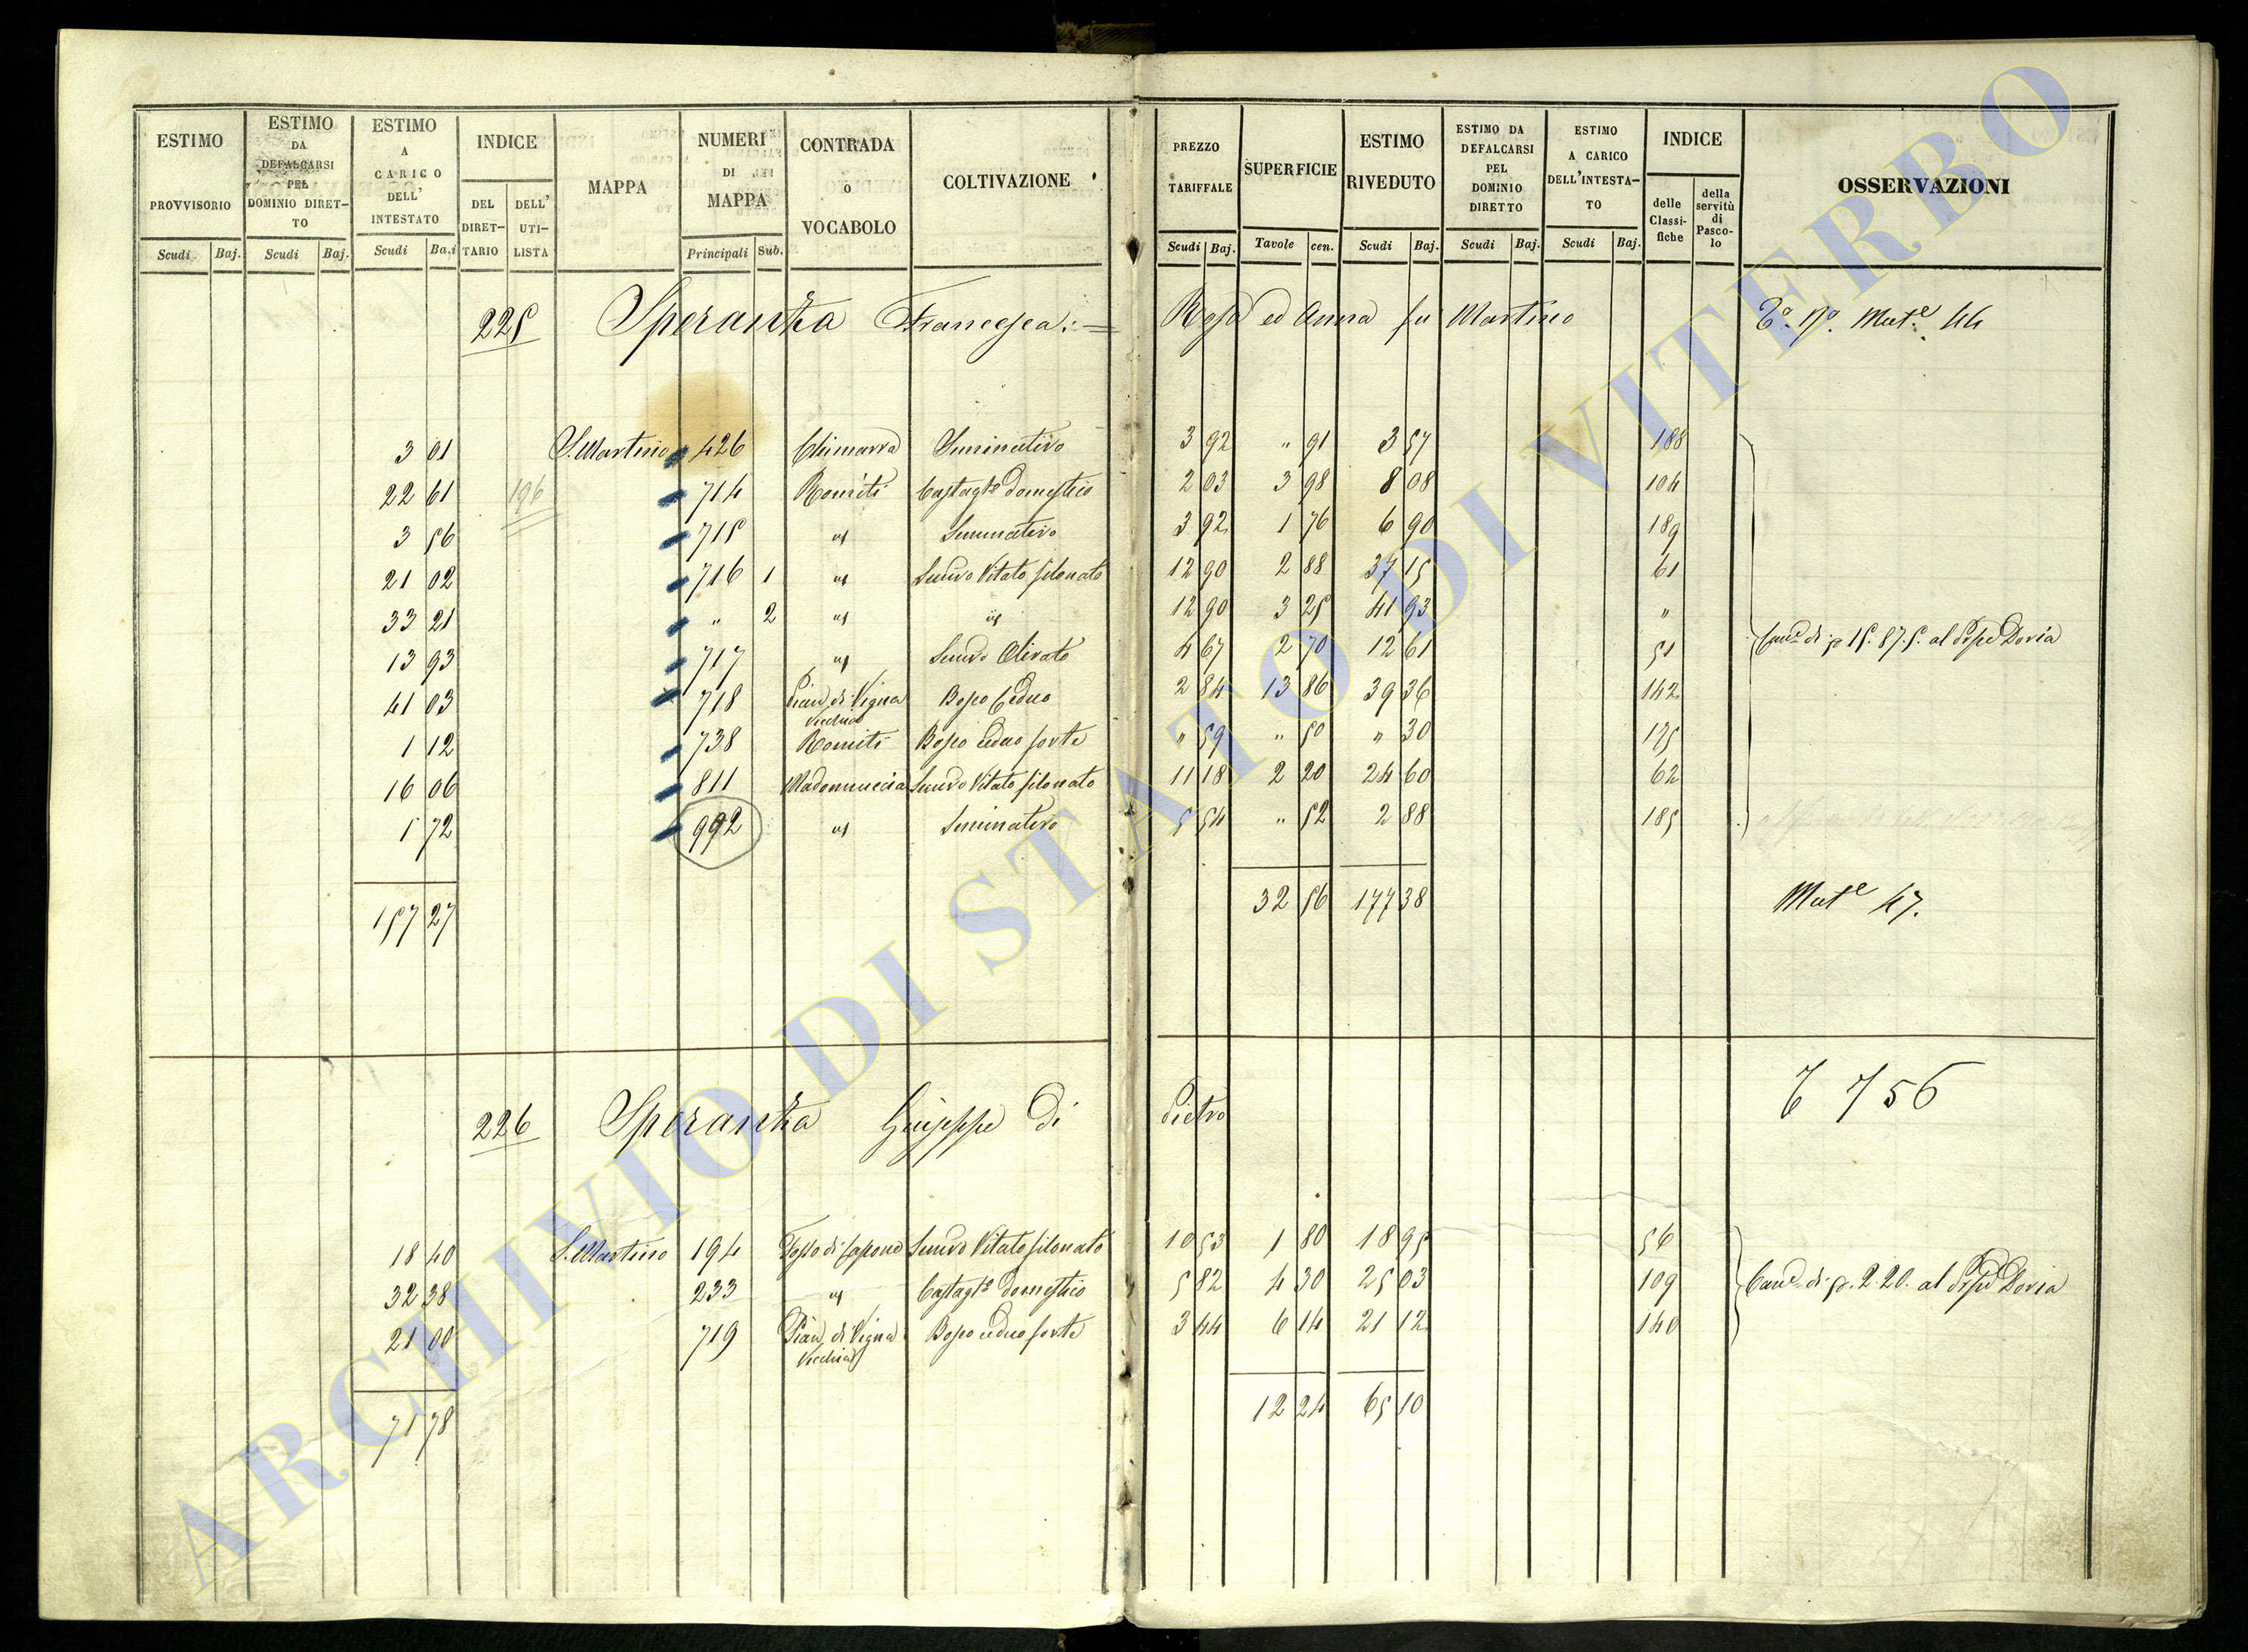 ESTIMO PROVVISORIO Scudi Baj. ESTIMO DA DEFALCARSI PEL DOMINIO DIRETTO Scudi Baj. ESTIMO A CARICO DELL' INTESTATO Scudi Ba.i INDICE DEL DIRETTARIO DELL' UTILISTA MAPPA NUMERI DI MAPPA Principali Sub. CONTRADA O VOCABOLO COLTIVAZIONE PREZZO TARIFFALE Scudi Baj. SUPERFICIE Tavole cen. ESTIMO RIVEDUTO Scudi Baj. ESTIMO DA DEFALCARSI PEL DOMINIO DIRETTO Scudi Baj. ESTIMO A CARICO DELL'INTESTATO Scudi Baj. INDICE delle Classifiche della servitù di Pascolo OSSERVAZIONI
225 Speranza Francesca := Rosa ed Anna fu Martino Mut.e 44
3 01 S. Martino 426 Chimarra Seminativo 3 92 " 91 3 57 188
22 61 196 714 Romiti Castagto domestico 2 03 3 98 8 08 104
3 56 715 id Seminativo 3 92 1 76 6 90 189
21 02 716 1 id Semivo Vitato filonato 12 90 2 88 37 15 61
33 21 " 2 id id 12 90 3 25 41 93 "
13 93 717 id Semivo Olivato 4 67 2 70 12 61 51 di 15.87.5. al Doria
41 03 718 Pian di Vigna Vecchia Bosco Ceduo 2 84 13 86 39 36 142
1 12 738 Romiti Bosco ceduo forte " 59 " 50 " 30 175
16 06 811 Madonnuccia Semivo Vitato filonato 11 18 2 20 24 60 62
1 72 992 id Seminativo 5 54 " 52 2 88 185
157 27 32 56 177 38 Mut.e 47.
226 Speranza Giuseppe di Pietro 756
18 40 S. Martino 194 Fosso di Capone Semivo Vitato filonato 10 53 1 80 18 95 56
32 38 233 id Castagto domestico 5 82 4 30 25 03 109 di 2.20. al Doria
21 00 719 Pian di Vigna Vecchia Bosco ceduo forte 3 44 6 14 21 12 140
71 78 12 24 65 10
ARCHIVIO DI STATO DI VITERBO